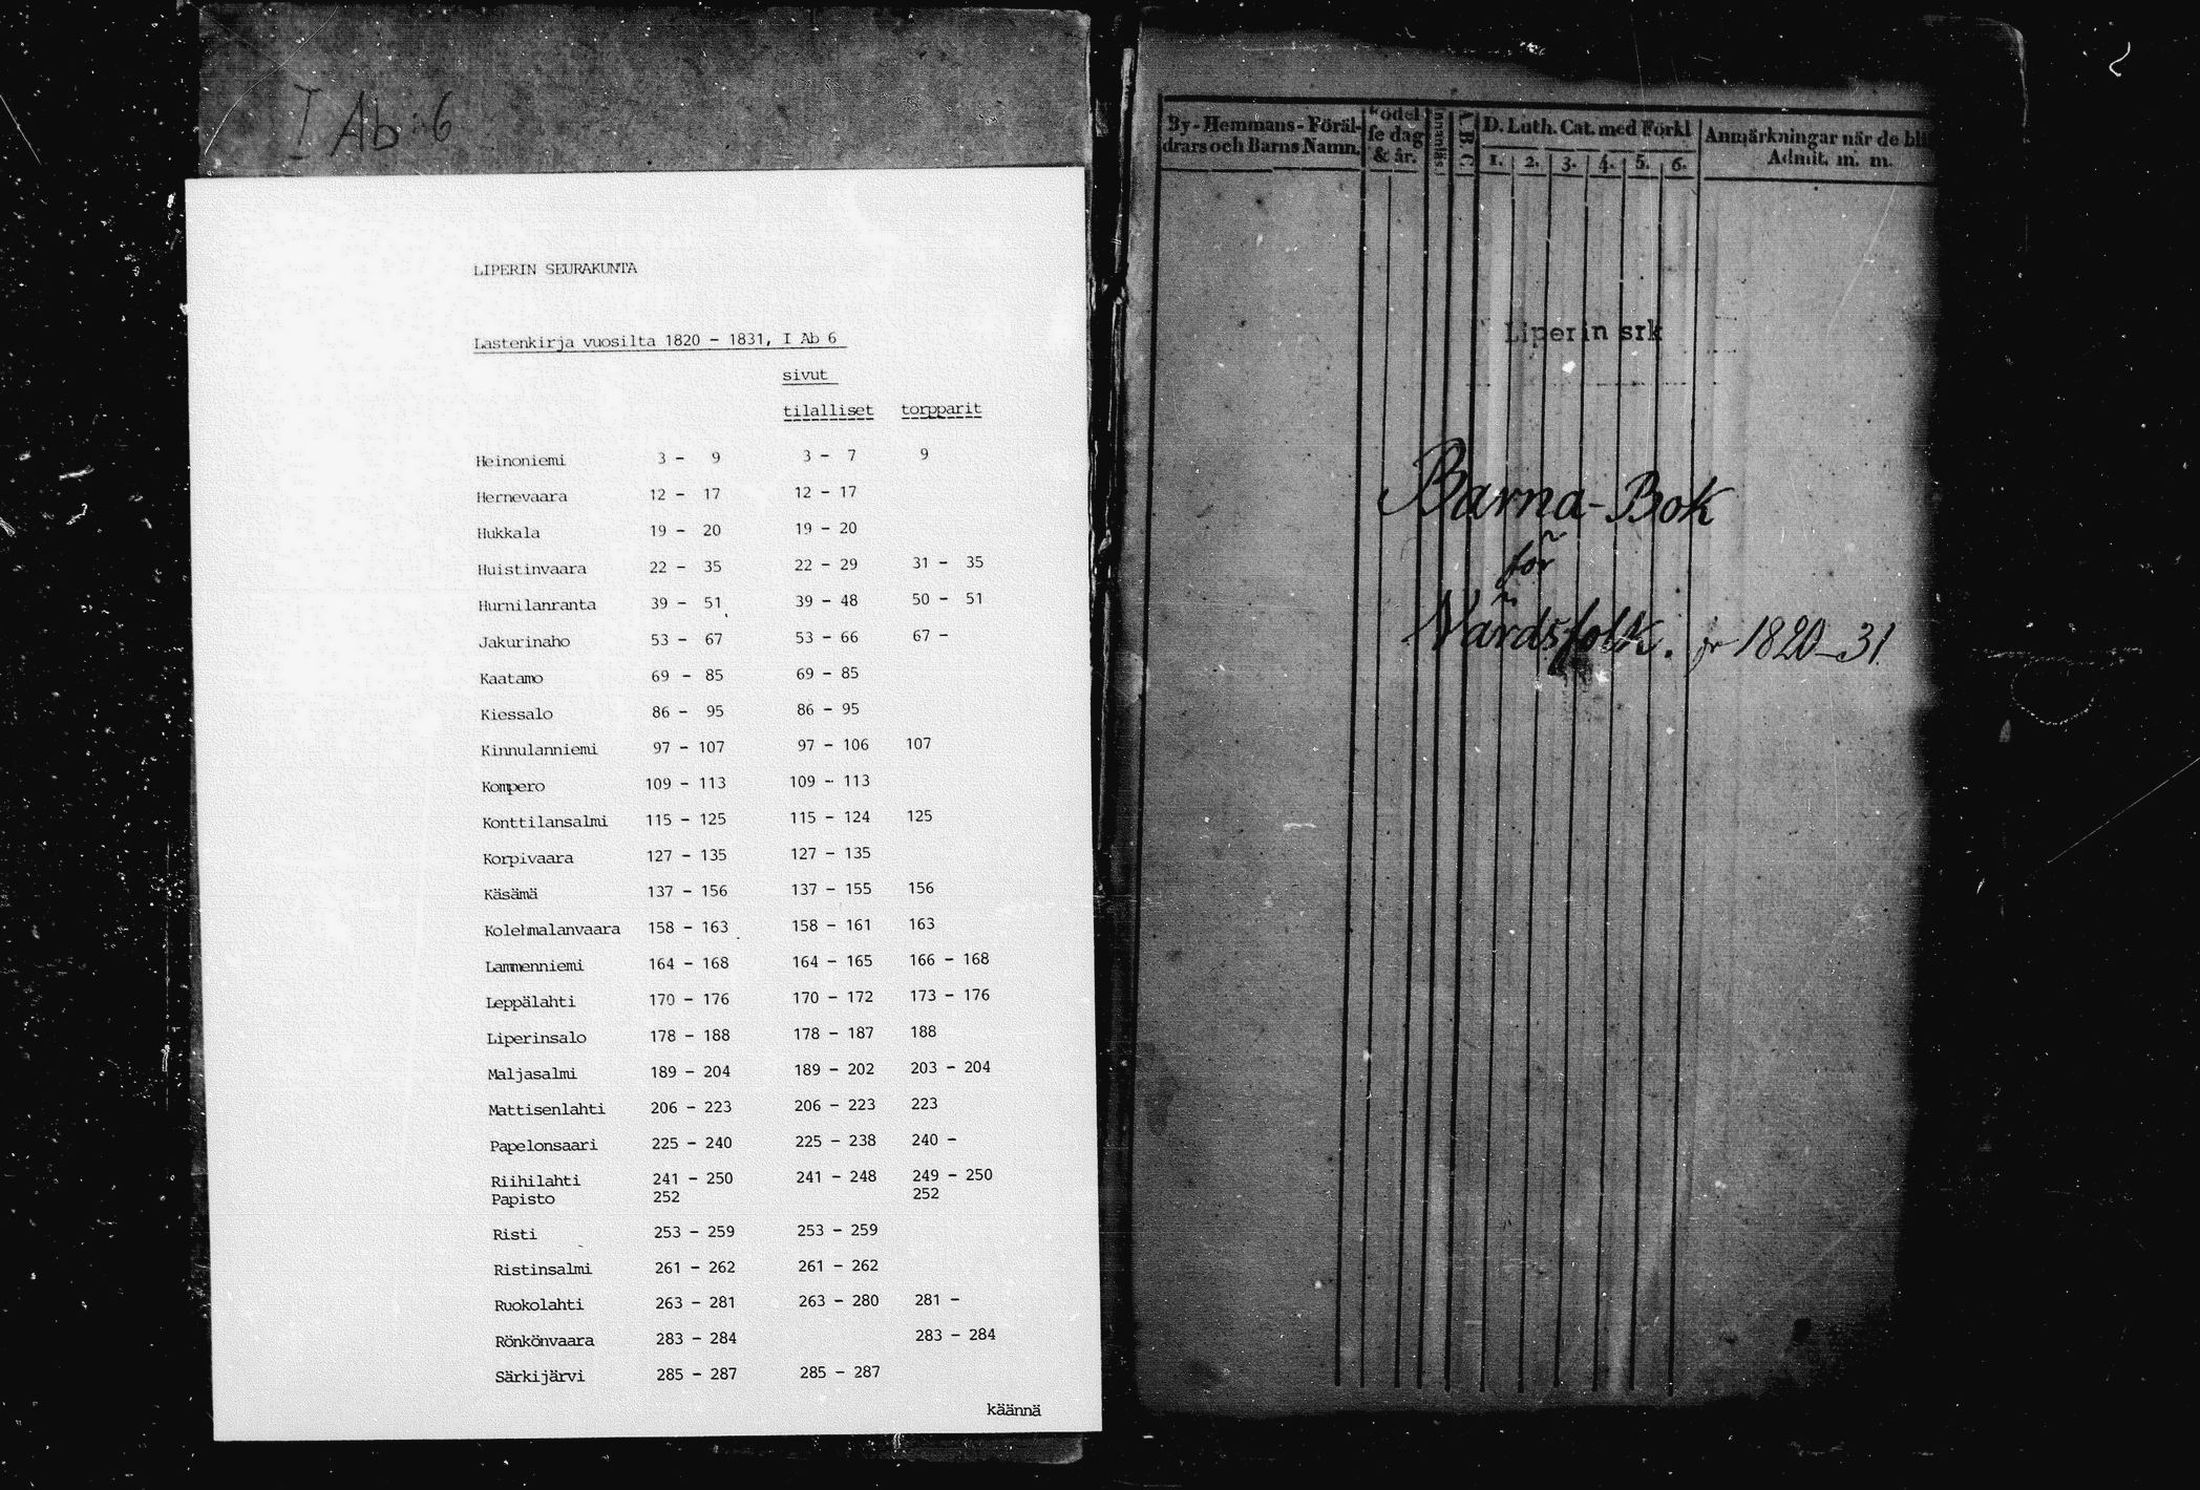 I Ab 6
LIPERIN SEURAKUNTA
Lastenkirja vuosilta 1820 - 1831, I Ab 6
sivut
tilalliset torpparit
Heinoniemi 3 - 9 3 - 7 9
Hernevaara 12 - 17 12 - 17
Hukkala 19 - 20 19 - 20
Huistinvaara 22 - 35 22 - 29 31 - 35
Hurnilanranta 39 - 51 39 - 48 50 - 51
Jakurinaho 53 - 67 53 - 66 67 -
Kaatamo 69 - 85 69 - 85
Kiessalo 86 - 95 86 - 95
Kinnulanniemi 97 - 107 97 - 106 107
Kompero 109 - 113 109 - 113
Konttilansalmi 115 - 125 115 - 124 125
Korpivaara 127 - 135 127 - 135
Käsämä 137 - 156 137 - 155 156
Kolehmalanvaara 158 - 163 158 - 161 163
Lammenniemi 164 - 168 164 - 165 166 - 168
Leppälahti 170 - 176 170 - 172 173 - 176
Liperinsalo 178 - 188 178 - 187 188
Maljasalmi 189 - 204 189 - 202 203 - 204
Mattisenlahti 206 - 223 206 - 223 223
Papelonsaari 225 - 240 225 - 238 240 -
Riihilahti 241 - 250 241 - 248 249 - 250
Papisto 252 252
Risti 253 - 259 253 - 259
Ristinsalmi 261 - 262 261 - 262
Ruokolahti 263 - 281 263 - 280 281 -
Rönkönvaara 283 - 284 283 - 284
Särkijärvi 285 - 287 285 - 287
käännä
By-Hemmans-Föräl-
drars och Barns Namn.
födel
se dag
& år.
Innanläs.
A B C
D. Luth. Cat. med Förkl
1. 2. 3. 4. 5. 6.
Anmärkningar når de bli
Admit. m. m.
Liperin srk
Barna-Bok
för
Wärdsfolk. för 1820-31.